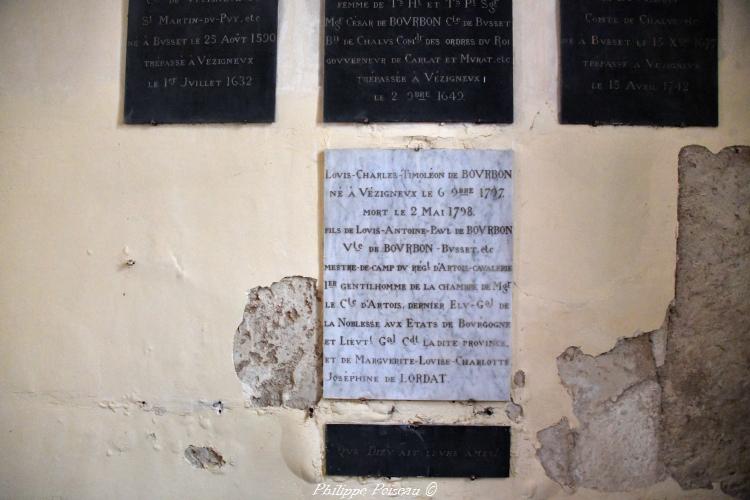 St MARTIN-DV-PVY, etc
NÉ À BVSSET LE 25 AOVT 1590
TRÉPASSÉ À VÉZIGNEVX
LE 1er JVILLET 1632
FEMME DE Ts Ht ET Ts Pt Sgr
Mgr CÉSAR DE BOVRBON Cte DE BVSSET
Bon DE CHALVS COMdr DES ORDRES DV ROI
GOVVERNEVR DE CARLAT ET MVRAT, etc
TRÉPASSÉE À VÉZIGNEVX
LE 2 9BRE 1649
COMTE DE CHALVS, etc
NÉ À BVSSET LE 15 Xbre 1677
TRÉPASSÉ À VÉZIGNEVX
LE 15 AVRIL 1742
LOVIS-CHARLES-TIMOLÉON DE BOVRBON
NÉ À VÉZIGNEVX LE 6 9BRE 1797
MORT LE 2 MAI 1798.
FILS DE LOVIS-ANTOINE-PAVL DE BOVRBON
Vte DE BOVRBON-BVSSET, etc
MESTRE-DE-CAMP DV RÉGt D'ARTOIS-CAVALERIE
1ER GENTILHOMME DE LA CHAMBRE DE Mgr
LE Cte D'ARTOIS, DERNIER ELV-Gal DE
LA NOBLESSE AVX ETATS DE BOVRGOGNE
ET LIEVt Gal Cdt LADITE PROVINCE,
ET DE MARGVERITE-LOVISE-CHARLOTTE
JOSÉPHINE DE LORDAT.
QVE DIEV AIT LEVRS AMES!
Philippe Poiseau ©